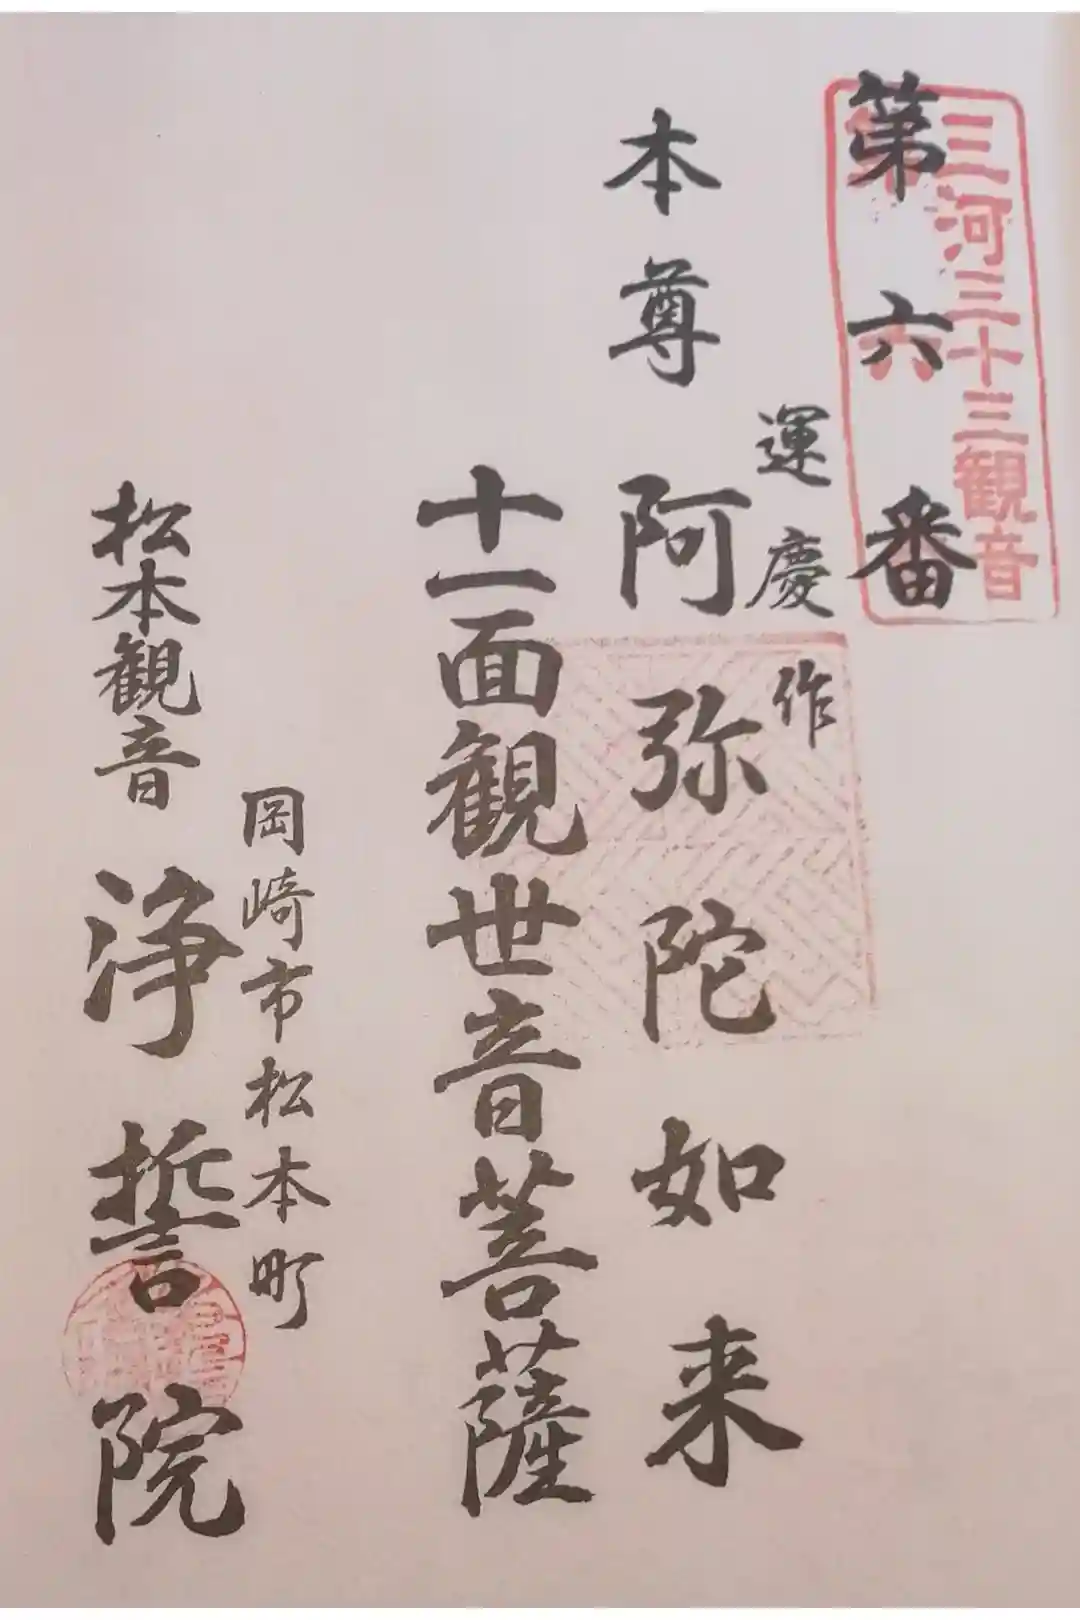 三河三十三観音
第六番
運慶作
本尊 阿弥陀如来
十一面観世音菩薩
岡崎市松本町
松本観音 浄誓院